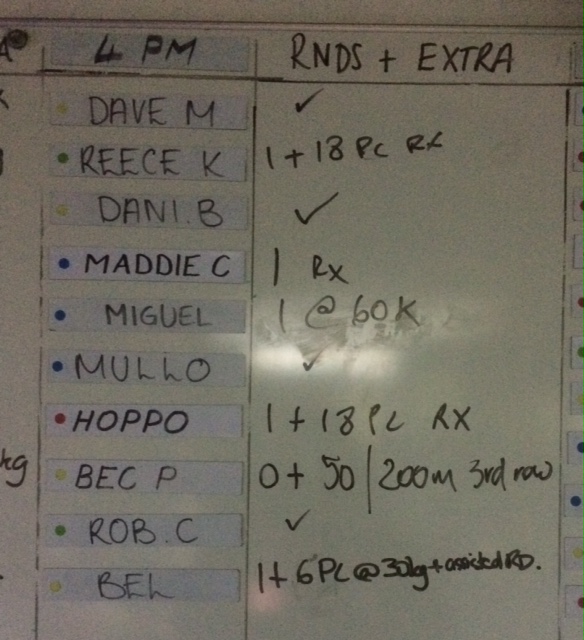 4 PM RNDS + EXTRA
DAVE M ✓
REECE K 1 + 18 PC RX
DANI.B ✓
MADDIE C 1 RX
MIGUEL 1 @ 60K
MULLO ✓
HOPPO 1 + 18 PC RX
kg
BEC P 0 + 50 | 200m 3rd row
ROB.C ✓
BEL 1 + 6 PC @ 30kg + assisted RD.